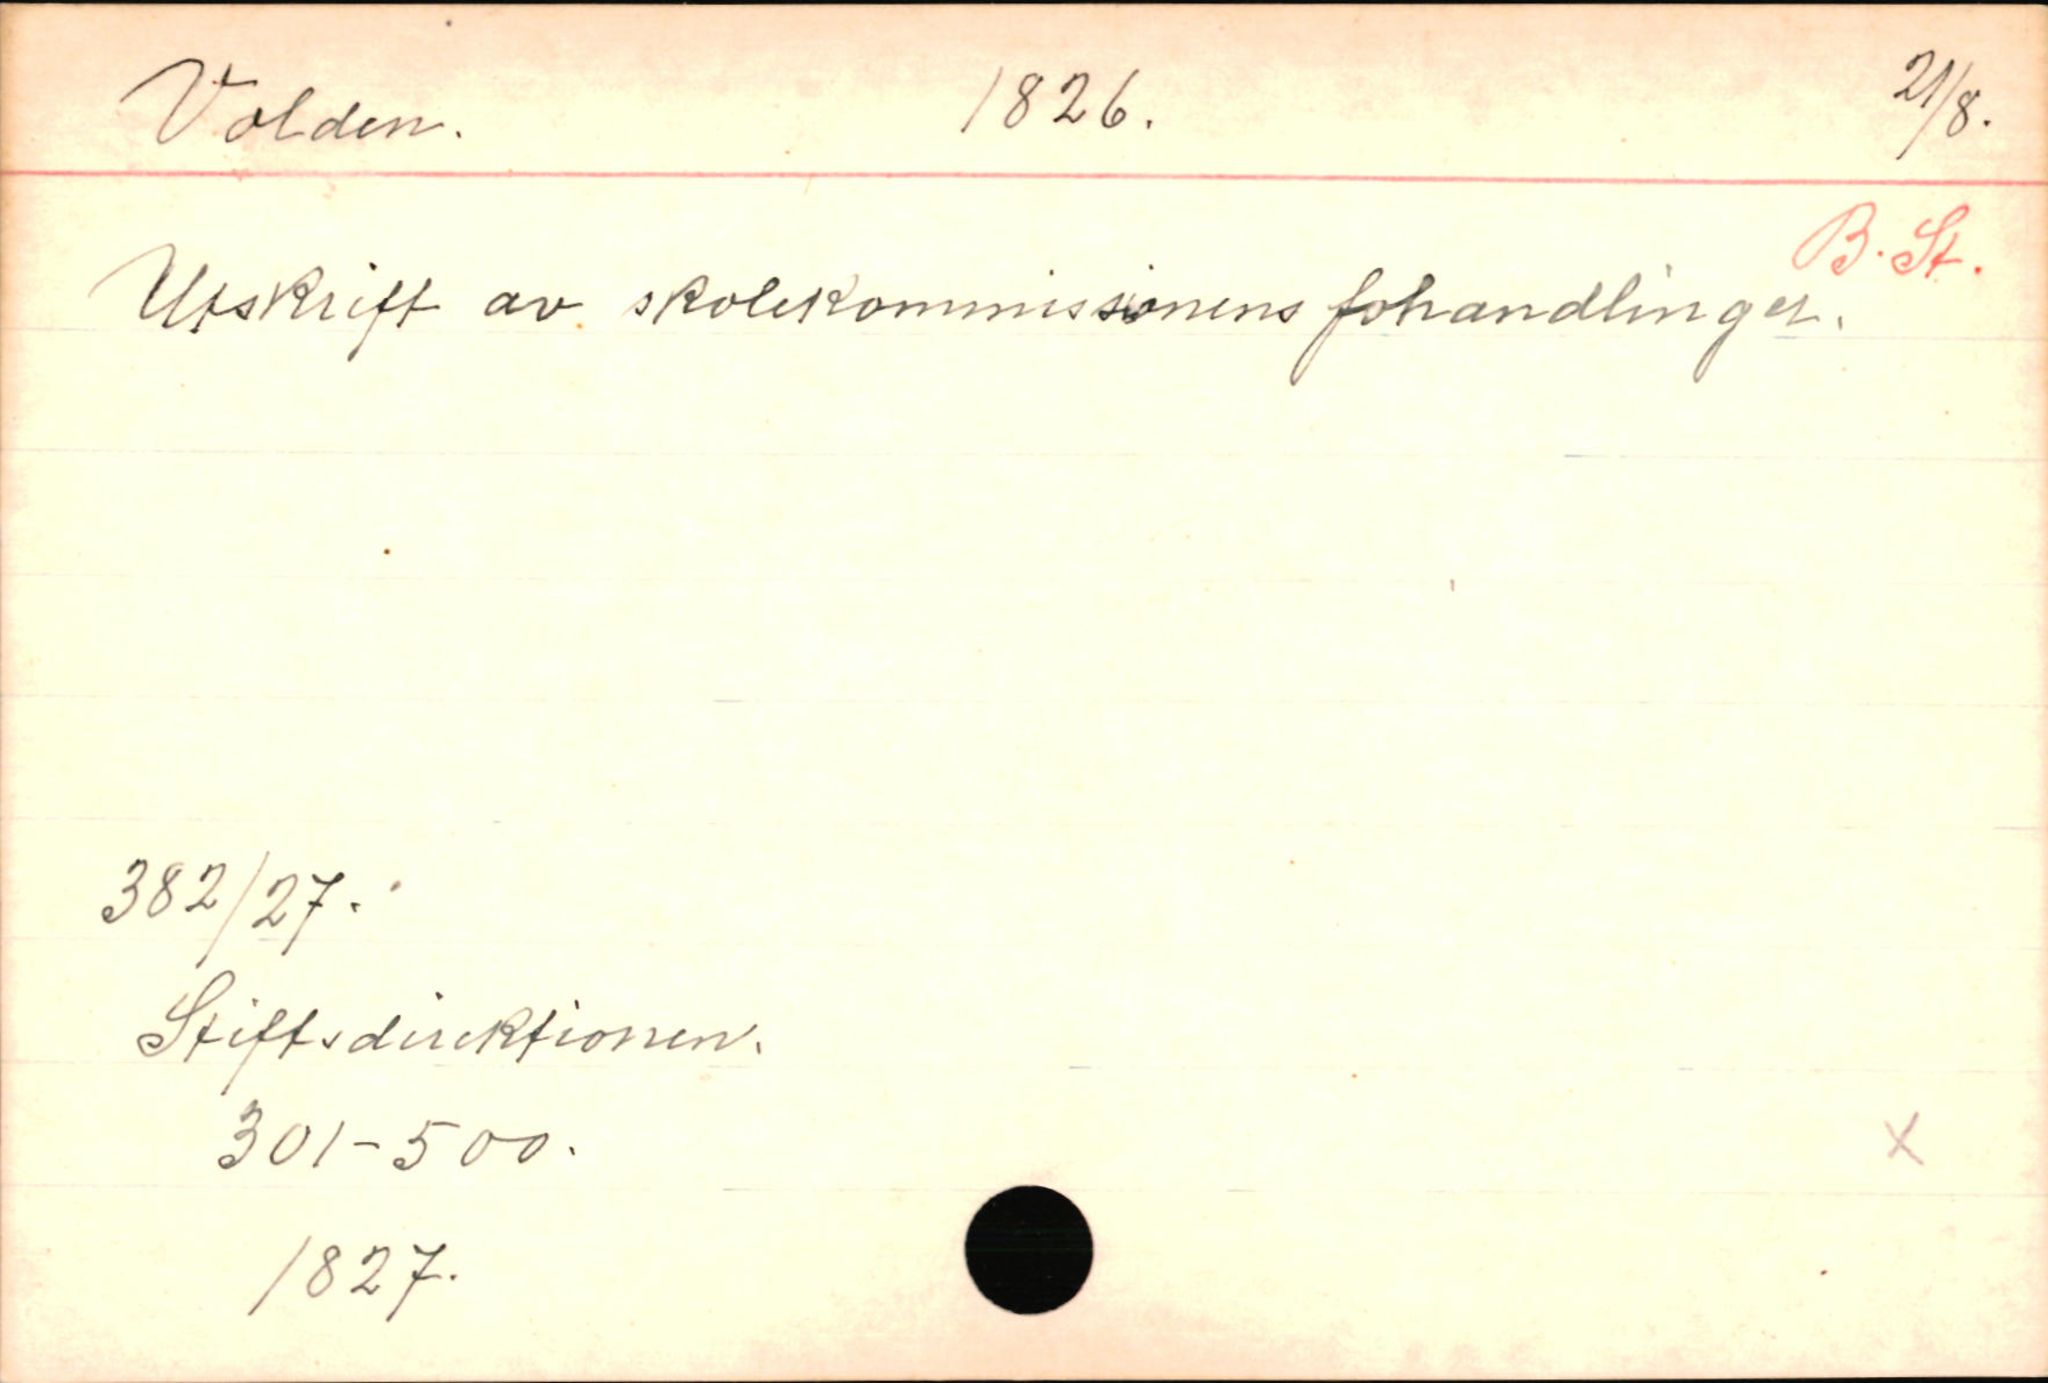 Volden. 1826. 21/8.
B. St.
Utskrift av skolekommissionens fohandlinger.
382/27.
Stiftsdirektionen.
301-500.
1827.
X